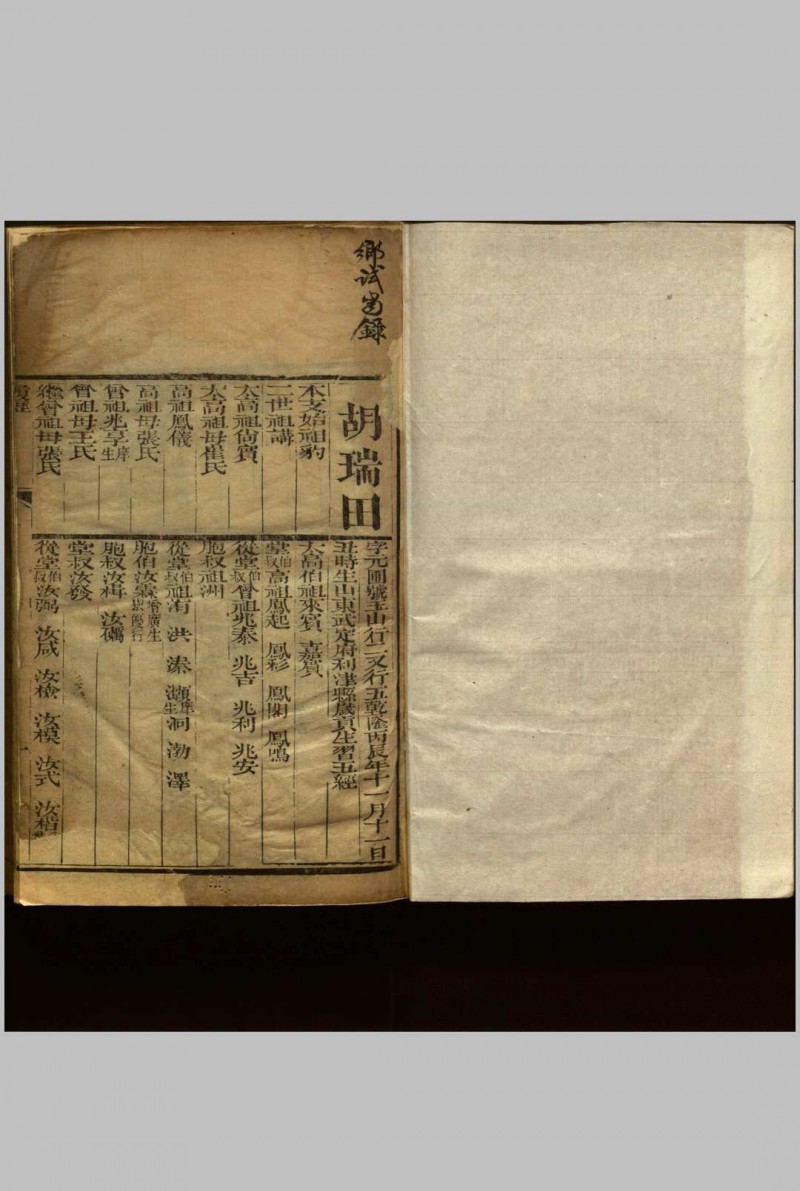 鄉試硃錄
胡瑞田
字元圃號玉山行二又行五乾隆丙辰年十一月十一日
丑時生山東武定府利津縣歲貢生習五經
本支始祖豹
二世祖講
太高祖尚賓
太高祖母崔氏
高祖鳳儀
高祖母張氏
曾祖兆享庠生
曾祖母王氏
繼曾祖母張氏
太高伯祖來賓 嘉賓
堂伯叔高祖鳳起 鳳彩 鳳閣 鳳鳴
從堂伯叔曾祖兆泰 兆吉 兆利 兆安
胞叔祖洲
從堂伯叔祖洧 洪 溱 灝庠生 泂 渤 澤
胞伯汝霖
胞叔汝楫 汝礪
堂叔汝發
從堂伯叔汝弼 汝咸 汝檢 汝模 汝式 汝楷